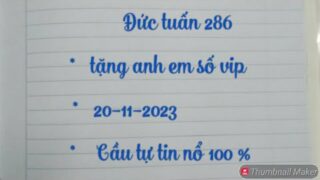 Đức tuấn 286
• tặng anh em số vip
• 20-11-2023
• Cầu tự tin nổ 100 %
Thumbnail Maker